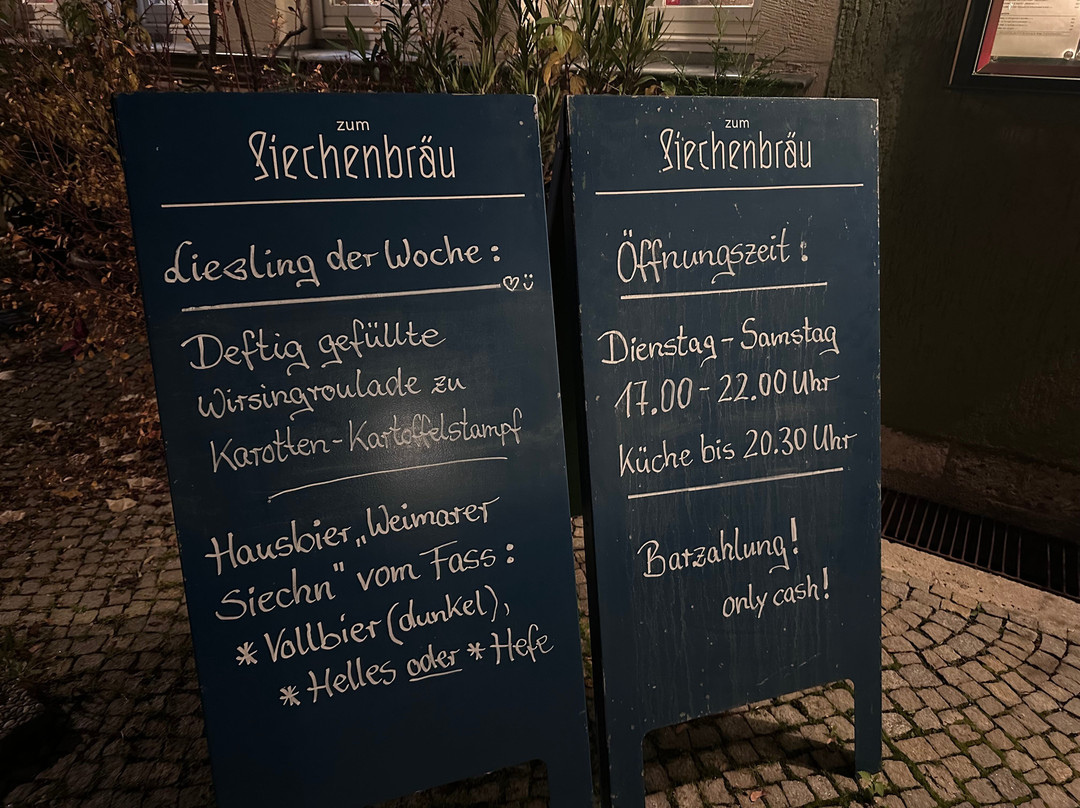 zum
Siechenbräu
Liesling der Woche:
Deftig gefüllte
Wirsingroulade zu
Karotten-Kartoffelstampf
Hausbier „Weimarer
Siechn" vom Fass:
* Vollbier (dunkel),
* Helles oder * Hefe
zum
Siechenbräu
Öffnungszeit:
Dienstag - Samstag
17.00 - 22.00 Uhr
Küche bis 20.30 Uhr
Barzahlung!
only cash!